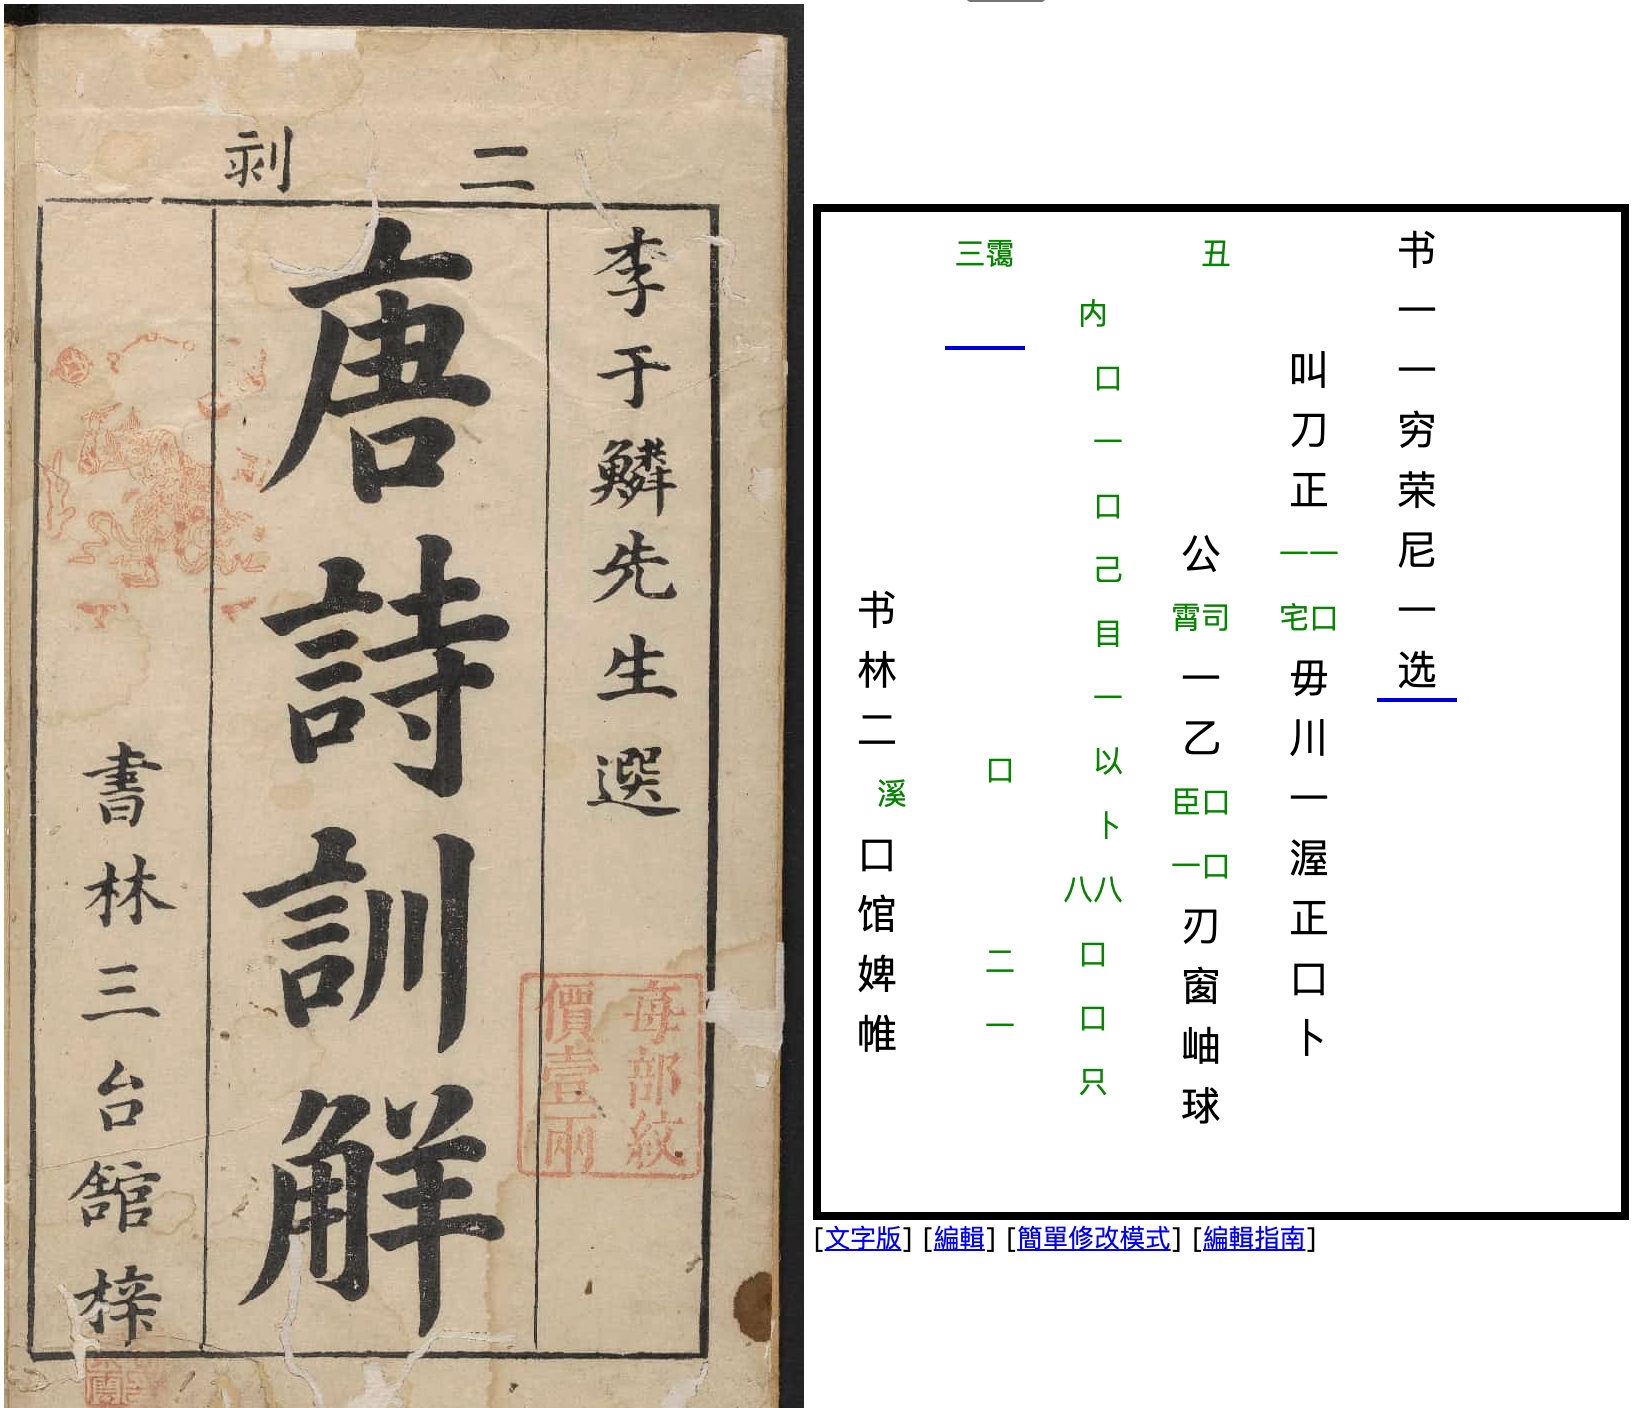 二刻
李于鱗先生選
唐詩訓解
書林三台舘梓
每部紋
價壹兩
书一一穷荣尼一选
叫刀正一一口宅毋川一渥正口卜
丑公司霄一乙口臣口一刃窗岫球
内口一口己目一以卜八八口口只
霭三口二一
书林二溪口馆婢帷
[文字版] [編輯] [簡單修改模式] [編輯指南]